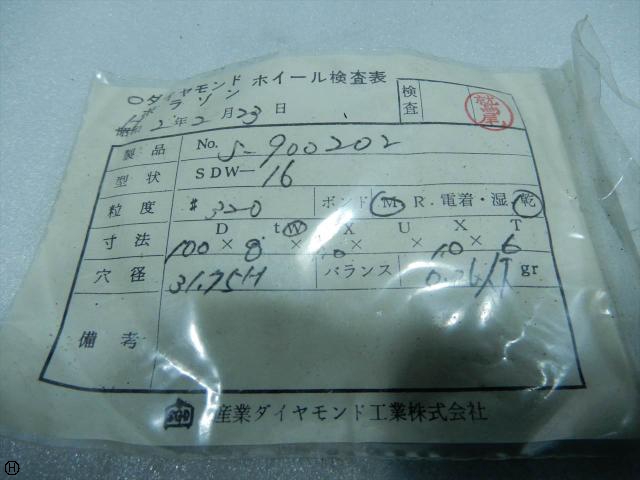 ○ダイヤモンド ホイール検査表
ボラゾン
2年2月23日
検査
製品 No. S-900202
型状 SDW-16
粒度 #320 ボンド M R. 電着・湿 乾
寸法 D t W X U X T
100 × 8. × 1.0 × × 1.0 × 6
穴径 31.75H バランス 0.26/T gr
備考
産業ダイヤモンド工業株式会社
H